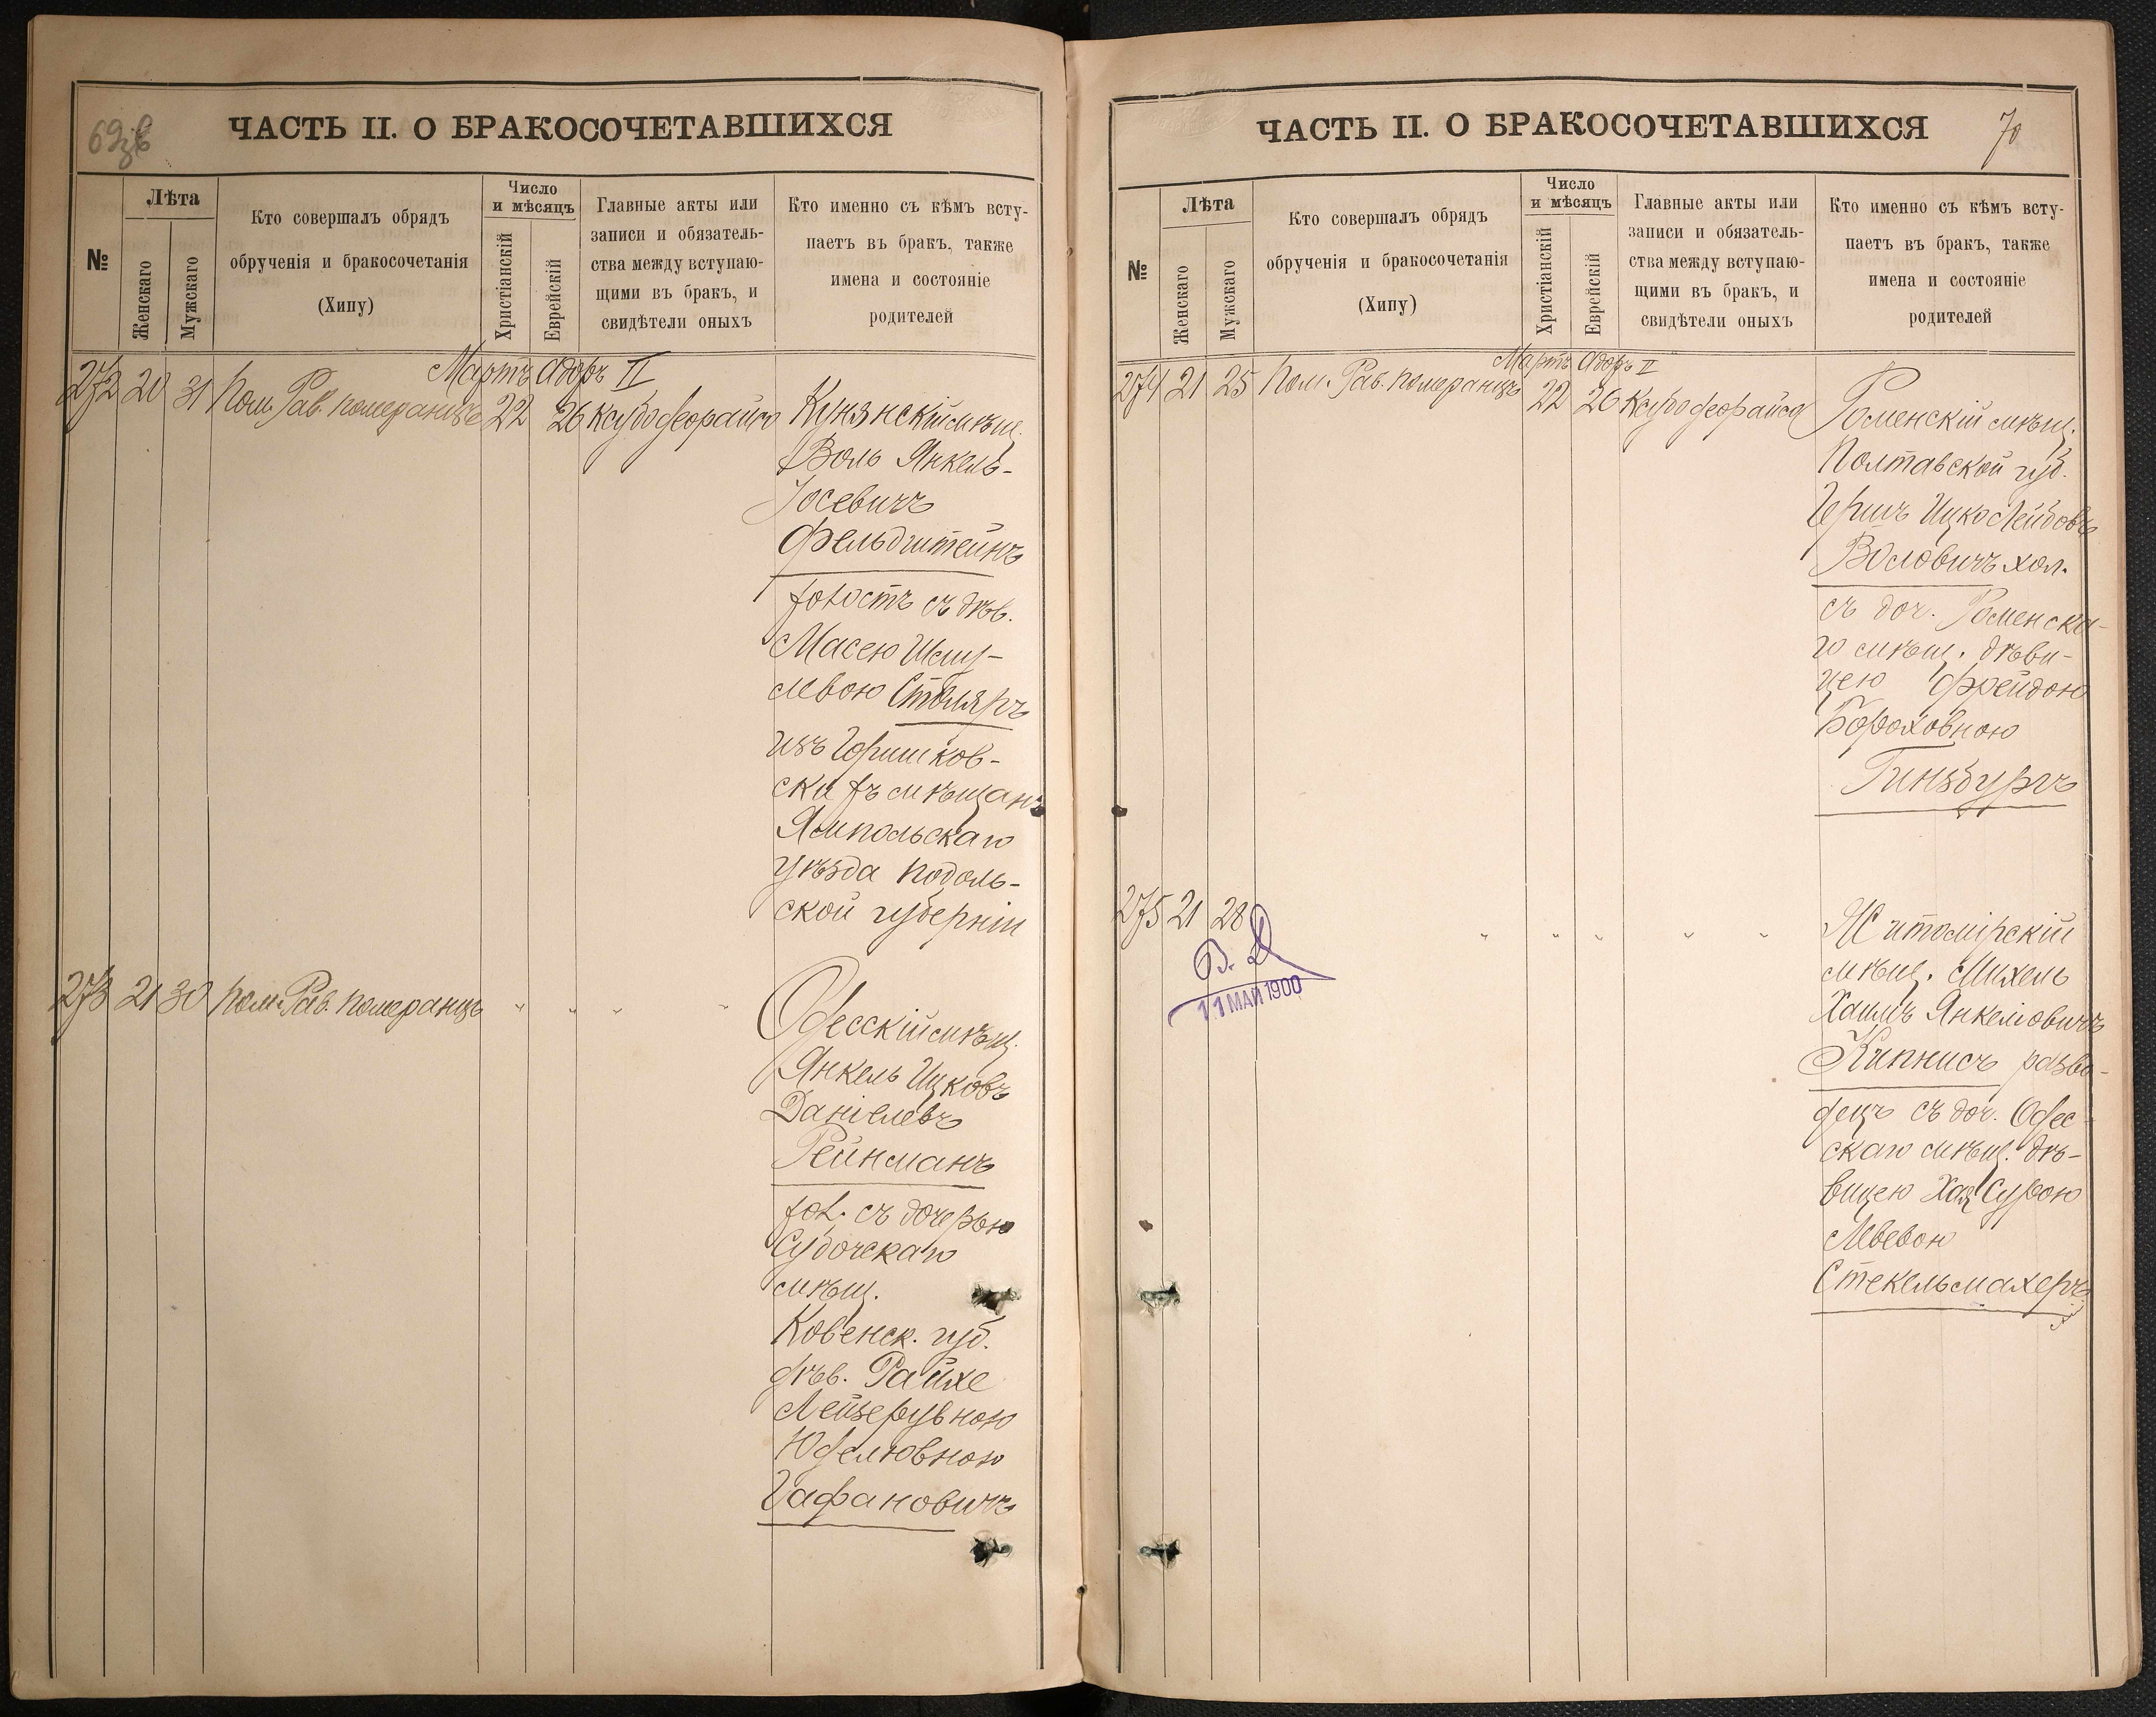 69 об
ЧАСТЬ II. О БРАКОСОЧЕТАВШИХСЯ
№
Лѣта
Женскаго
Мужскаго
Кто совершалъ обрядъ
обрученія и бракосочетанія
(Хипу)
Число
и мѣсяцъ
Христіанскій
Еврейскій
Главные акты или
записи и обязатель-
ства между вступаю-
щими въ бракъ, и
свидѣтели оныхъ
Кто именно съ кѣмъ всту-
паетъ въ бракъ, также
имена и состояніе
родителей
Мартъ Адоръ II
272 20 31 Пом. Рав. Померанцъ 22 26
Воль Янкель-
Іосевичъ
Фельдштейнъ
холостъ съ дѣв.
Масею Шму-
левою Столяръ
изъ
скихъ мѣщанъ
Ямпольскаго
уѣзда Подоль-
ской губерніи
273 21 30 Пом. Рав. Померанцъ " " " "
Одесскій мѣщ.
Янкель Ицковъ
Даніелевъ
Рейнманъ
хол. съ дочерью
мѣщ.
Ковенск. губ.
дѣв.
Гафановичъ
70
ЧАСТЬ II. О БРАКОСОЧЕТАВШИХСЯ
№
Лѣта
Женскаго
Мужскаго
Кто совершалъ обрядъ
обрученія и бракосочетанія
(Хипу)
Число
и мѣсяцъ
Христіанскій
Еврейскій
Главные акты или
записи и обязатель-
ства между вступаю-
щими въ бракъ, и
свидѣтели оныхъ
Кто именно съ кѣмъ всту-
паетъ въ бракъ, также
имена и состояніе
родителей
Мартъ Адоръ II
274 21 25 Пом. Рав. Померанцъ 22 26
Роменскій мѣщ.
Полтавской губ.
Гершъ Ицко Лейбовъ
Воловичъ хол.
съ доч. Роменска-
го мѣщ. дѣви-
цею Фрейдою
Бороховною
Гинзбургъ
275 21 28 " " " " "
Житомірскій
мѣщ. Михель
Хаимъ Янкеліовичъ
Кипнисъ разво-
децъ съ доч. Одес-
скаго мѣщ. дѣ-
вицею Хая Сурою
Левевою
Стекельмахеръ
В. Д
11 МАЙ 1900